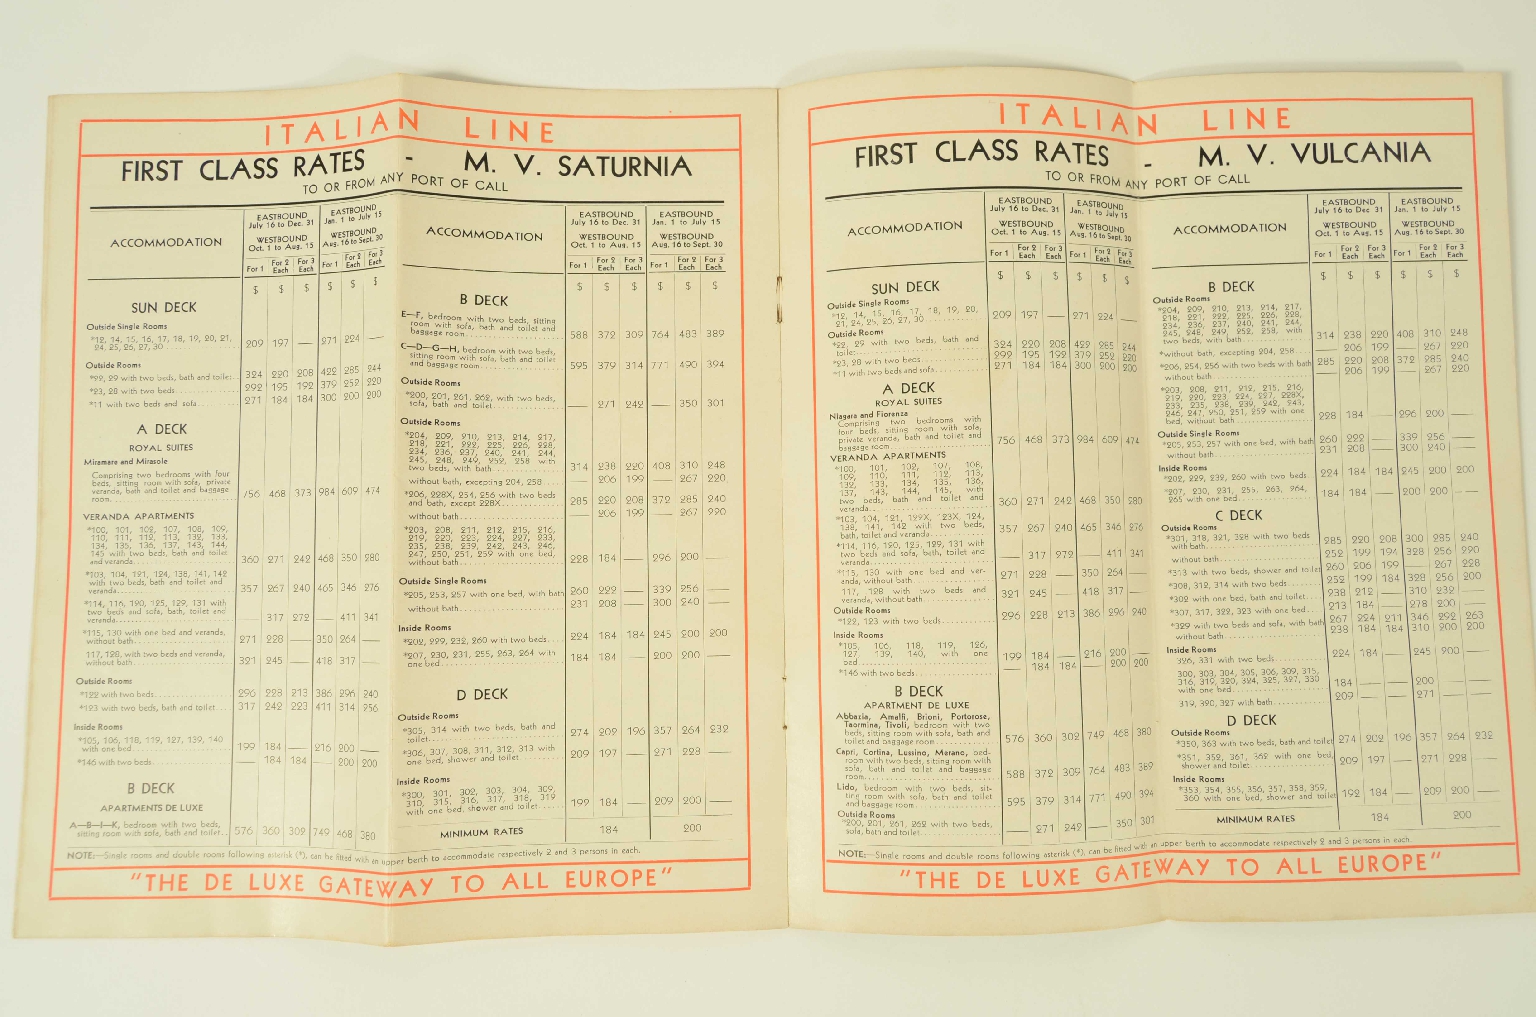 ITALIAN LINE
FIRST CLASS RATES - M. V. SATURNIA
TO OR FROM ANY PORT OF CALL
ACCOMMODATION
EASTBOUND July 16 to Dec. 31
EASTBOUND Jan. 1 to July 15
WESTBOUND Oct. 1 to Aug. 15
WESTBOUND Aug. 16 to Sept. 30
For 1 For 2 Each For 3 Each For 1 For 2 Each For 3 Each
$ $ $ $ $ $
SUN DECK
Outside Single Rooms
*12, 14, 15, 16, 17, 18, 19, 20, 21,
24, 25, 26, 27, 30 209 197 — 271 224 —
Outside Rooms
*22, 29 with two beds, bath and toilet 324 220 208 422 285 244
*23, 28 with two beds 292 195 192 379 252 220
*11 with two beds and sofa 271 184 184 300 200 200
A DECK
ROYAL SUITES
Miramare and Mirasole
Comprising two bedrooms with four
beds, sitting room with sofa, private
veranda, bath and toilet and baggage
room 756 468 373 984 609 474
VERANDA APARTMENTS
*100, 101, 102, 107, 108, 109,
110, 111, 112, 113, 132, 133,
134, 135, 136, 137, 143, 144,
145 with two beds, bath and toilet
and veranda 360 271 242 468 350 280
*103, 104, 121, 124, 138, 141, 142
with two beds, bath and toilet and
veranda 357 267 240 465 346 276
*114, 116, 120, 125, 129, 131 with
two beds and sofa, bath, toilet and
veranda — 317 272 — 411 341
*115, 130 with one bed and veranda,
without bath 271 228 — 350 264 —
117, 128, with two beds and veranda,
without bath 321 245 — 418 317 —
Outside Rooms
*122 with two beds 296 228 213 386 296 240
*123 with two beds, bath and toilet 317 242 223 411 314 256
Inside Rooms
*105, 106, 118, 119, 127, 139, 140
with one bed 199 184 — 216 200 —
*146 with two beds 184 184 — 200 200
B DECK
APARTMENTS DE LUXE
A—B—I—K, bedroom with two beds,
sitting room with sofa, bath and toilet 576 360 302 749 468 380
ACCOMMODATION
EASTBOUND July 16 to Dec. 31
EASTBOUND Jan. 1 to July 15
WESTBOUND Oct. 1 to Aug. 15
WESTBOUND Aug. 16 to Sept. 30
For 1 For 2 Each For 3 Each For 1 For 2 Each For 3 Each
$ $ $ $ $ $
B DECK
E—F, bedroom with two beds, sitting
room with sofa, bath and toilet and
baggage room 588 372 309 764 483 389
C—D—G—H, bedroom with two beds,
sitting room with sofa, bath and toilet
and baggage room 595 379 314 771 490 394
Outside Rooms
*200, 201, 261, 262, with two beds,
sofa, bath and toilet — 271 242 — 350 301
Outside Rooms
*204, 209, 210, 213, 214, 217,
218, 221, 222, 225, 226, 228,
234, 236, 237, 240, 241, 244,
245, 248, 249, 252, 258 with
two beds, with bath 314 238 220 408 310 248
without bath, excepting 204, 258 — 206 199 — 267 220
*206, 228X, 254, 256 with two beds
and bath, except 228X 285 220 208 372 285 240
without bath — 206 199 — 267 220
*203, 208, 211, 212, 215, 216,
219, 220, 223, 224, 227, 233,
235, 238, 239, 242, 243, 246,
247, 250, 251, 259 with one bed,
without bath 228 184 — 296 200 —
Outside Single Rooms
*205, 253, 257 with one bed, with bath 260 222 — 339 256 —
without bath 231 208 — 300 240 —
Inside Rooms
*202, 229, 232, 260 with two beds 224 184 184 245 200 200
*207, 230, 231, 255, 263, 264 with
one bed 184 184 — 200 200 —
D DECK
Outside Rooms
*305, 314 with two beds, bath and
toilet 274 202 196 357 264 232
*306, 307, 308, 311, 312, 313 with
one bed, shower and toilet 209 197 — 271 228 —
Inside Rooms
*300, 301, 302, 303, 304, 309,
310, 315, 316, 317, 318, 319
with one bed, shower and toilet 199 184 — 209 200 —
MINIMUM RATES 184 200
NOTE:—Single rooms and double rooms following asterisk (*), can be fitted with an upper berth to accommodate respectively 2 and 3 persons in each.
"THE DE LUXE GATEWAY TO ALL EUROPE"
ITALIAN LINE
FIRST CLASS RATES - M. V. VULCANIA
TO OR FROM ANY PORT OF CALL
ACCOMMODATION
EASTBOUND July 16 to Dec. 31
EASTBOUND Jan. 1 to July 15
WESTBOUND Oct. 1 to Aug. 15
WESTBOUND Aug. 16 to Sept. 30
For 1 For 2 Each For 3 Each For 1 For 2 Each For 3 Each
$ $ $ $ $ $
SUN DECK
Outside Single Rooms
*12, 14, 15, 16, 17, 18, 19, 20,
21, 24, 25, 26, 27, 30 209 197 — 271 224 —
Outside Rooms
*22, 29 with two beds, bath and
toilet 324 220 208 422 285 244
*23, 28 with two beds 292 195 192 379 252 220
*11 with two beds and sofa 271 184 184 300 200 200
A DECK
ROYAL SUITES
Niagara and Fiorenza
Comprising two bedrooms with
four beds, sitting room with sofa,
private veranda, bath and toilet and
baggage room 756 468 373 984 609 474
VERANDA APARTMENTS
*100, 101, 102, 107, 108,
109, 110, 111, 112, 113,
132, 133, 134, 135, 136,
137, 143, 144, 145, with
two beds, bath and toilet and
veranda 360 271 242 468 350 280
*103, 104, 121, 122X, 123X, 124,
138, 141, 142 with two beds,
bath, toilet and veranda 357 267 240 465 346 276
*114, 116, 120, 125, 129, 131 with
two beds and sofa, bath, toilet and
veranda — 317 272 — 411 341
*115, 130 with one bed and ver-
anda, without bath 271 228 — 350 264 —
117, 128 with two beds and
veranda, without bath 321 245 — 418 317 —
Outside Rooms
*122, 123 with two beds 296 228 213 386 296 240
Inside Rooms
*105, 106, 118, 119, 126,
127, 139, 140, with one
bed 199 184 — 216 200 —
*146 with two beds — 184 184 — 200 200
B DECK
APARTMENT DE LUXE
Abbazia, Amalfi, Brioni, Portorose,
Taormina, Tivoli, bedroom with two
beds, sitting room with sofa, bath and
toilet and baggage room 576 360 302 749 468 380
Capri, Cortina, Lussino, Merano, bed-
room with two beds, sitting room with
sofa, bath and toilet and baggage
room 588 372 309 764 483 389
Lido, bedroom with two beds, sit-
ting room with sofa, bath and toilet
and baggage room 595 379 314 771 490 394
Outside Rooms
*200, 201, 261, 262 with two beds,
sofa, bath and toilet — 271 242 — 350 301
ACCOMMODATION
EASTBOUND July 16 to Dec. 31
EASTBOUND Jan. 1 to July 15
WESTBOUND Oct. 1 to Aug. 15
WESTBOUND Aug. 16 to Sept. 30
For 1 For 2 Each For 3 Each For 1 For 2 Each For 3 Each
$ $ $ $ $ $
B DECK
Outside Rooms
*204, 209, 210, 213, 214, 217,
218, 221, 222, 225, 226, 228,
234, 236, 237, 240, 241, 244,
245, 248, 249, 252, 258, with
two beds, with bath 314 238 220 408 310 248
*without bath, excepting 204, 258 — 206 199 — 267 220
*206, 254, 256 with two beds with bath 285 220 208 372 285 240
without bath — 206 199 — 267 220
*203, 208, 211, 212, 215, 216,
219, 220, 223, 224, 227, 228X,
233, 235, 238, 239, 242, 243,
246, 247, 250, 251, 259 with one
bed, without bath 228 184 — 296 200 —
Outside Single Rooms
*205, 253, 257 with one bed, with bath 260 222 — 339 256 —
without bath 231 208 — 300 240 —
Inside Rooms
*202, 229, 232, 260 with two beds 224 184 184 245 200 200
*207, 230, 231, 255, 263, 264,
265 with one bed 184 184 — 200 200 —
C DECK
Outside Rooms
*301, 318, 321, 328 with two beds
with bath 285 220 208 300 285 240
without bath 252 199 194 328 256 220
*313 with two beds, shower and toilet 260 206 199 — 267 228
*308, 312, 314 with two beds 252 199 184 328 256 200
*302 with one bed, bath and toilet 238 212 — 310 232 —
*307, 317, 322, 323 with one bed 213 184 — 278 200 —
*329 with two beds and sofa, with bath 267 224 211 346 292 263
without bath 238 184 184 310 200 200
Inside Rooms
326, 331 with two beds 224 184 — 245 200 —
300, 303, 304, 305, 306, 309, 315,
316, 319, 320, 324, 325, 327, 330
with one bed 184 — — 200 — —
319, 320, 327 with bath 209 — — 271 — —
D DECK
Outside Rooms
*350, 363 with two beds, bath and toilet 274 202 196 357 264 232
*351, 352, 361, 362 with one bed,
shower and toilet 209 197 — 271 228 —
Inside Rooms
*353, 354, 355, 356, 357, 358, 359,
360 with one bed, shower and toilet 192 184 — 209 200 —
MINIMUM RATES 184 200
NOTE:—Single rooms and double rooms following asterisk (*), can be fitted with an upper berth to accommodate respectively 2 and 3 persons in each.
"THE DE LUXE GATEWAY TO ALL EUROPE"